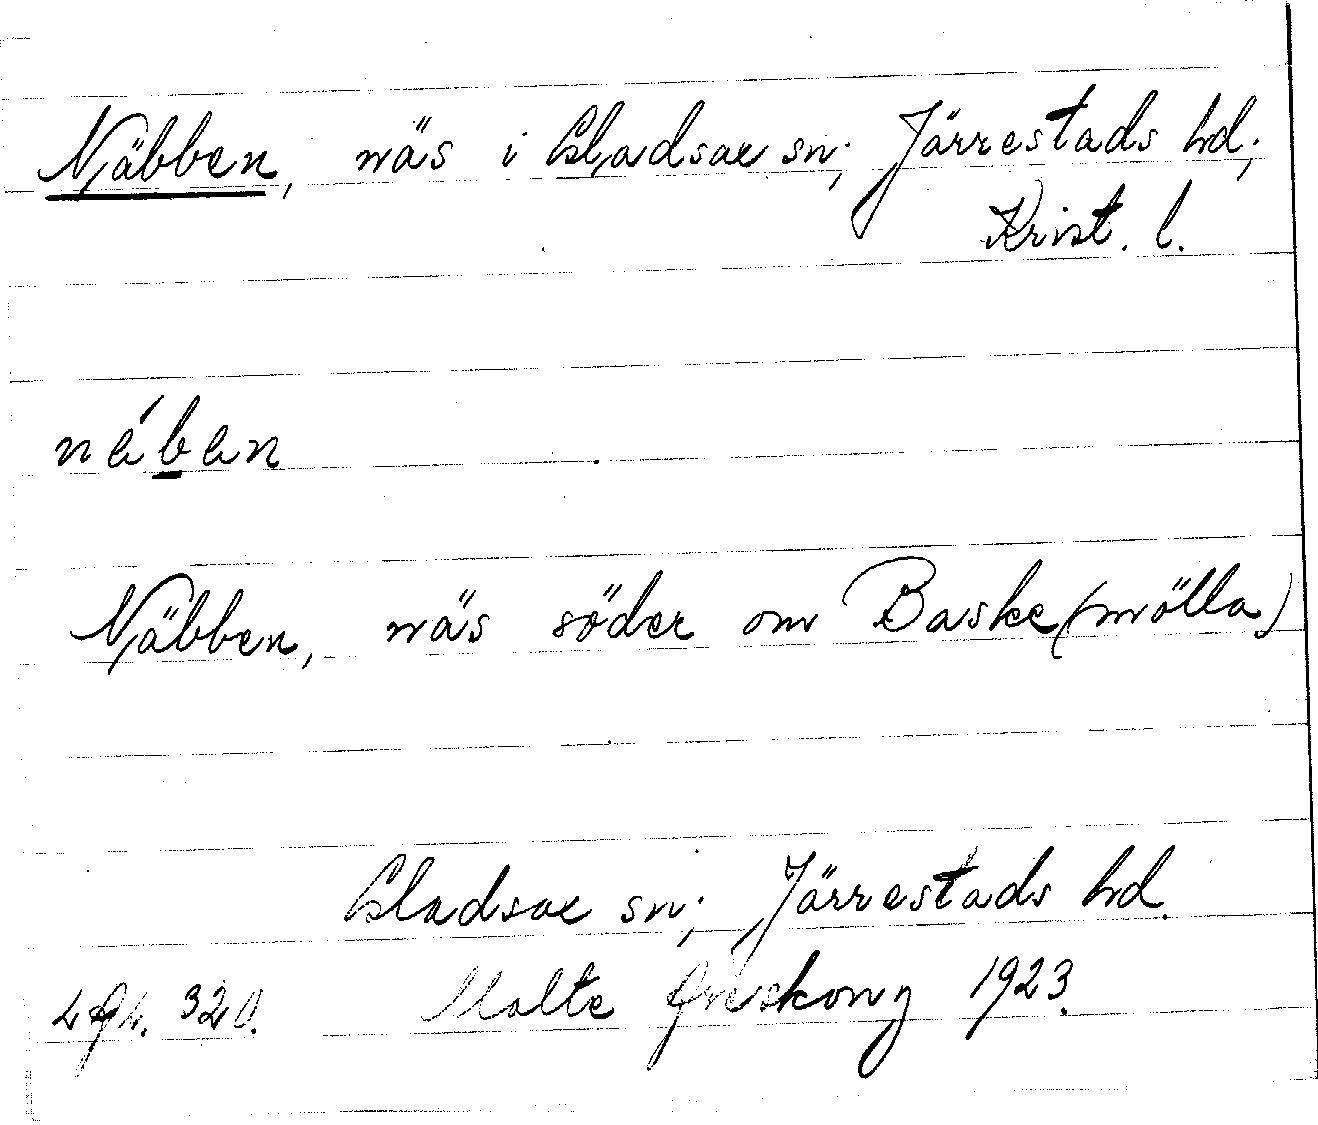 Näbben, näs i Gladsax sn; Järrestads hd;
Krist. l.
nɛ́ban
Näbben, näs söder om Baske(mölla)
Gladsax sn; Järrestads hd.
320. Malte 1923.